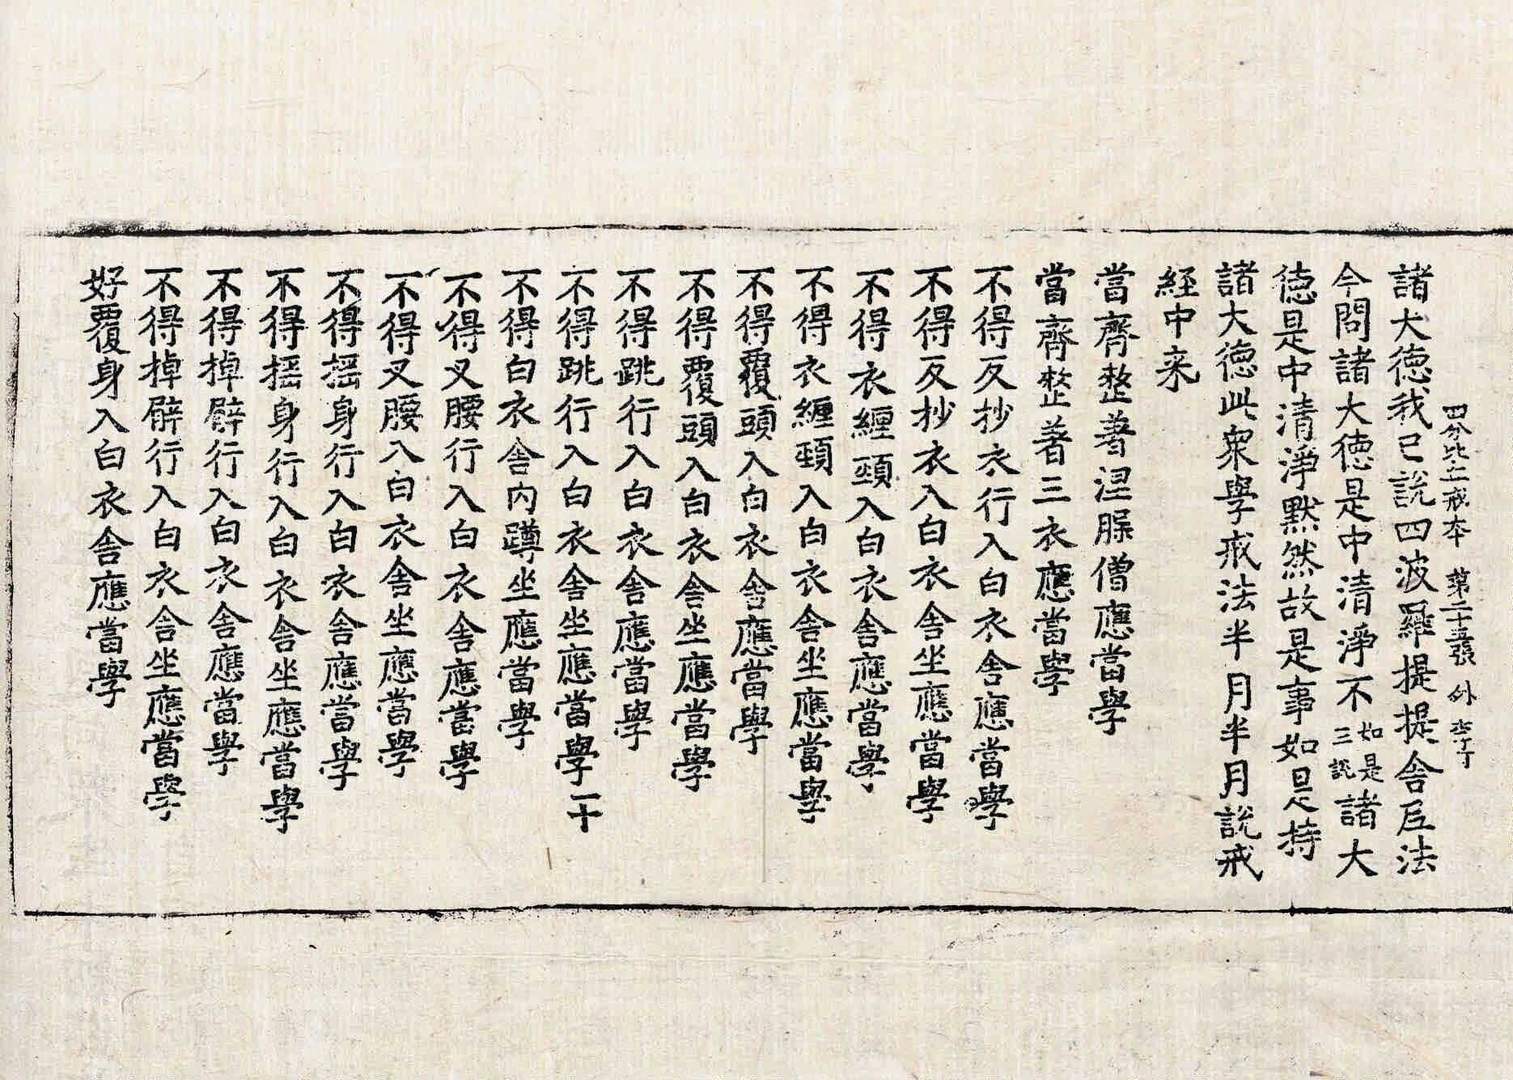 諸大徳我已說四波羅提提舍尼法
四分比丘戒本　第二十五張　外
今問諸大徳是中清淨不如是三說諸大
徳是中清淨默然故是事如是持
諸大徳此衆學戒法半月半月說戒
経中来
當齊整著涅脲僧應當學
當齊整著三衣應當學
不得反抄衣行入白衣舎應當學
不得反抄衣入白衣舎坐應當學
不得衣纏頸入白衣舎應當學
不得衣纏頸入白衣舎坐應當學
不得覆頭入白衣舎應當學
不得覆頭入白衣舎坐應當學
不得跳行入白衣舎應當學
不得跳行入白衣舎坐應當學一十
不得白衣舎内蹲坐應當學
不得叉腰行入白衣舎應當學
不得叉腰入白衣舎坐應當學
不得揺身行入白衣舎應當學
不得揺身行入白衣舎坐應當學
不得掉臂行入白衣舎應當學
不得掉臂行入白衣舎坐應當學
好覆身入白衣舎應當學